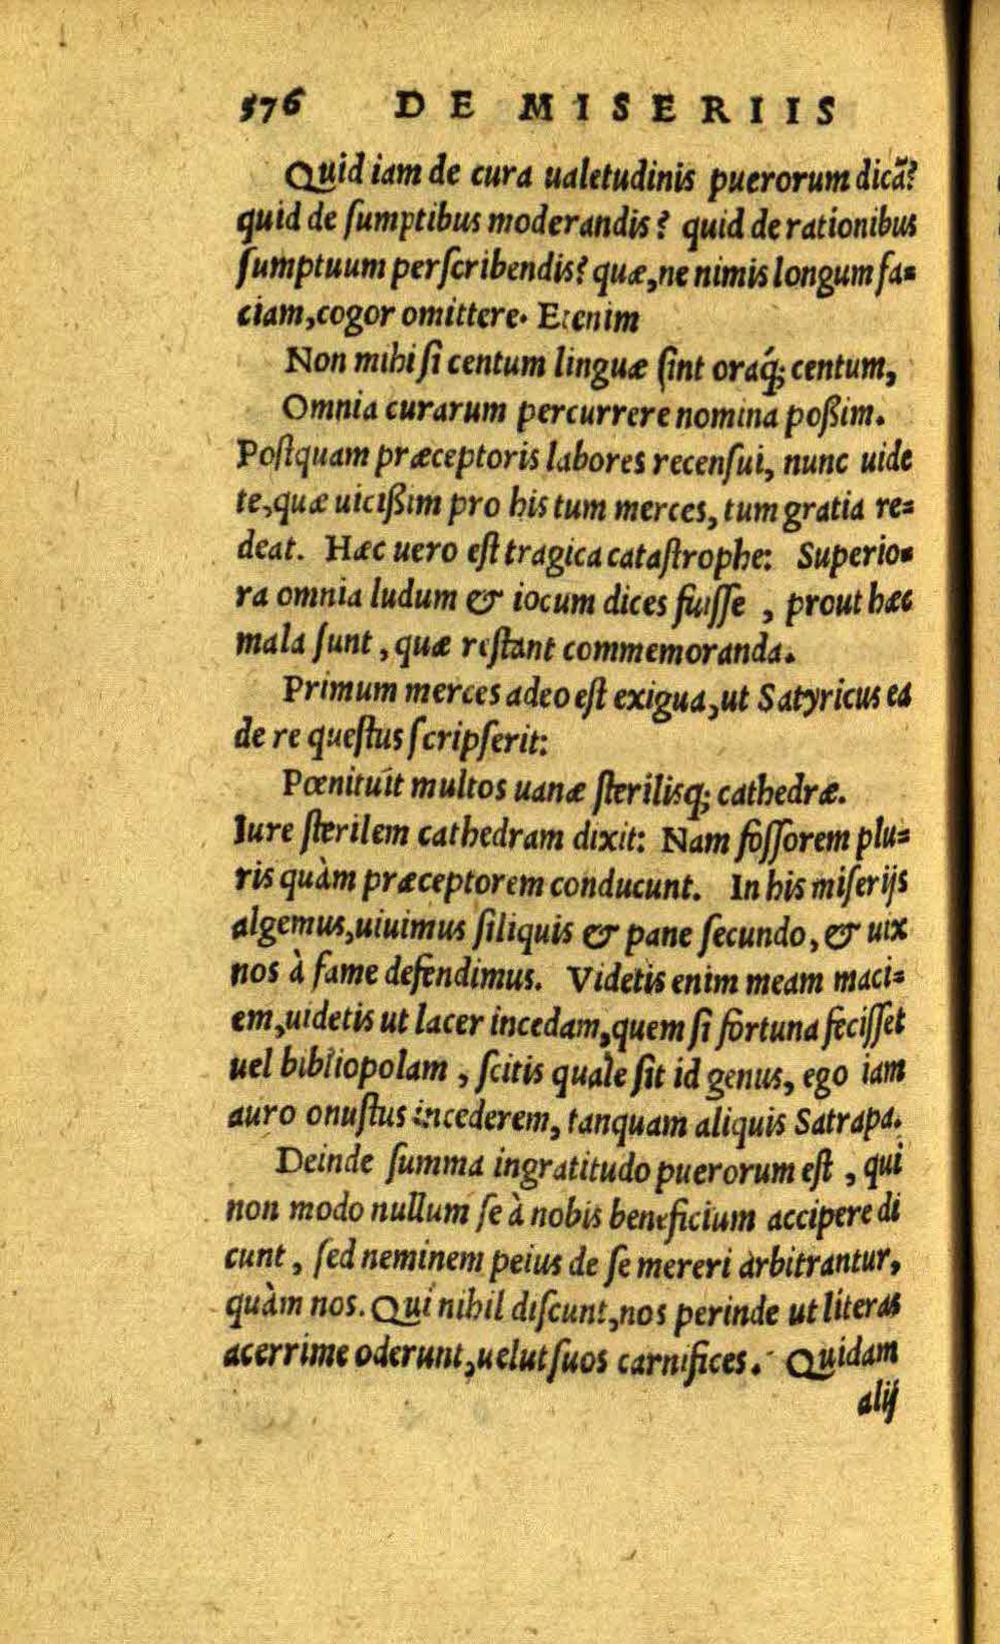 576 DE MISERIIS
Quid iam de cura ualetudinis puerorum dicã?
quid de ſumptibus moderandis? quid de rationibus
ſumptuum perſcribendis? quæ, ne nimis longum fa=
ciam, cogor omittere. Etenim
Non mihi ſi centum linguæ ſint oraq́; centum,
Omnia curarum percurrere nomina poßim.
Poſtquam præceptoris labores recenſui, nunc uide
te, quæ uicißim pro his tum merces, tum gratia re=
deat. Hæc uero eſt tragica cataſtrophe: Superio=
ra omnia ludum & iocum dices fuiſſe, prout hæc
mala ſunt, quæ reſtant commemoranda.
Primum merces adeo eſt exigua, ut Satyricus ea
de re queſtus ſcripſerit:
Pœnituit multos uanæ ſterilisq; cathedræ.
Iure ſterilem cathedram dixit: Nam foſſorem plu=
ris quàm præceptorem conducunt. In his miſerijs
algemus, uiuimus ſiliquis & pane ſecundo, & uix
nos à fame defendimus. Videtis enim meam maci=
em, uidetis ut lacer incedam, quem ſi fortuna feciſſet
uel bibliopolam, ſcitis quale ſit id genus, ego iam
auro onuſtus incederem, tanquam aliquis Satrapa.
Deinde ſumma ingratitudo puerorum eſt, qui
non modo nullum ſe à nobis beneficium accipere di
cunt, ſed neminem peius de ſe mereri arbitrantur,
quàm nos. Qui nihil diſcunt, nos perinde ut literas
acerrime oderunt, uelut ſuos carnifices. Quidam
alij